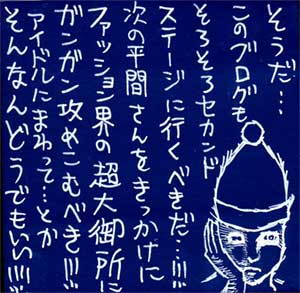 そうだ…
このブログも
そろそろセカンド
ステージに行くべきだ…!!!
次の平間さんをきっかけに
ファッション界の超大御所に
ガンガン攻めこむべき!!!
アイドルにまわって…とか
そんなんどうでもいい!!!!